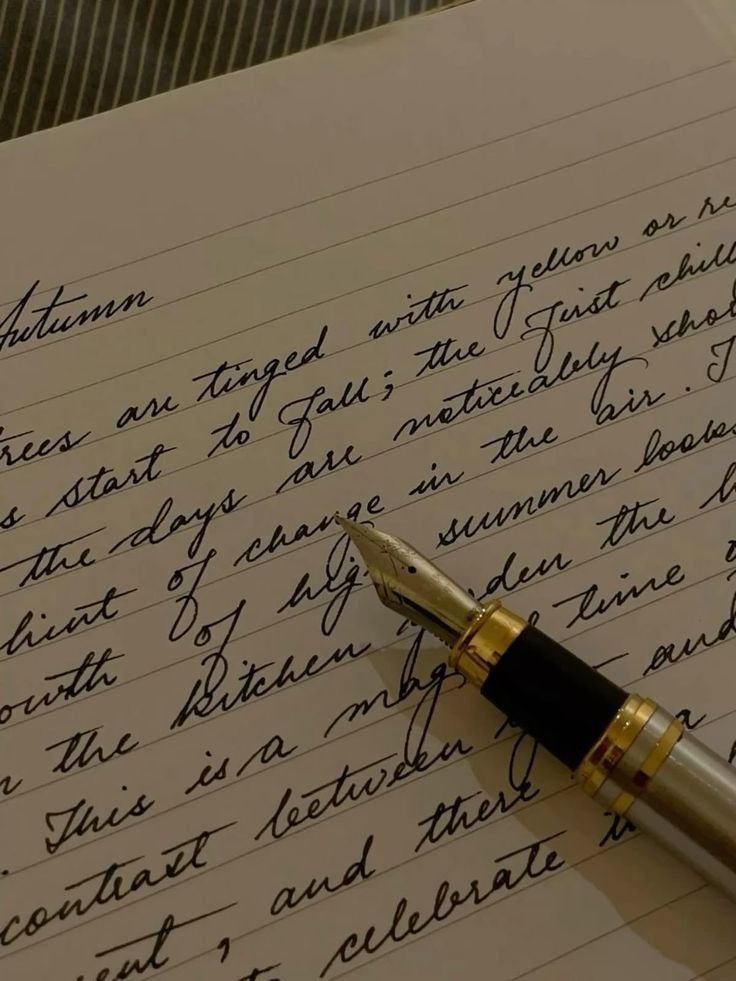 Autumn
rees are tinged with yellow or re
s start to fall; the first chill
the days are noticeably sho
hint of change in the air. T
owth of high summer looks
n the kitchen den the h
. This is a mag time
contrast between a and
ent, and there
celebrate